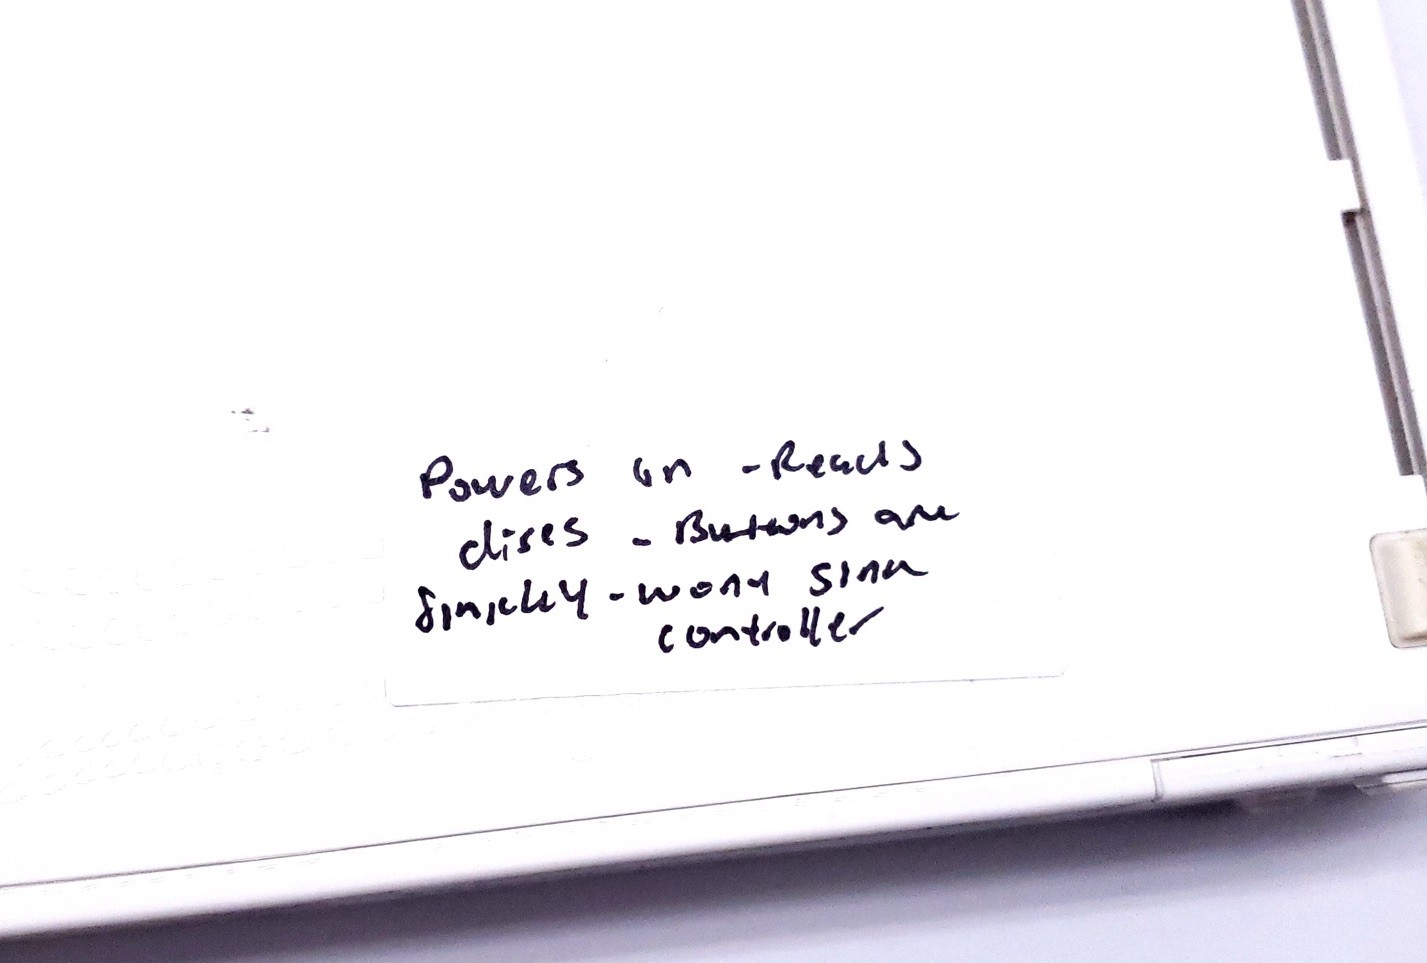 Powers on - Reads
discs - Buttons are
finicky - wont sinc
controller